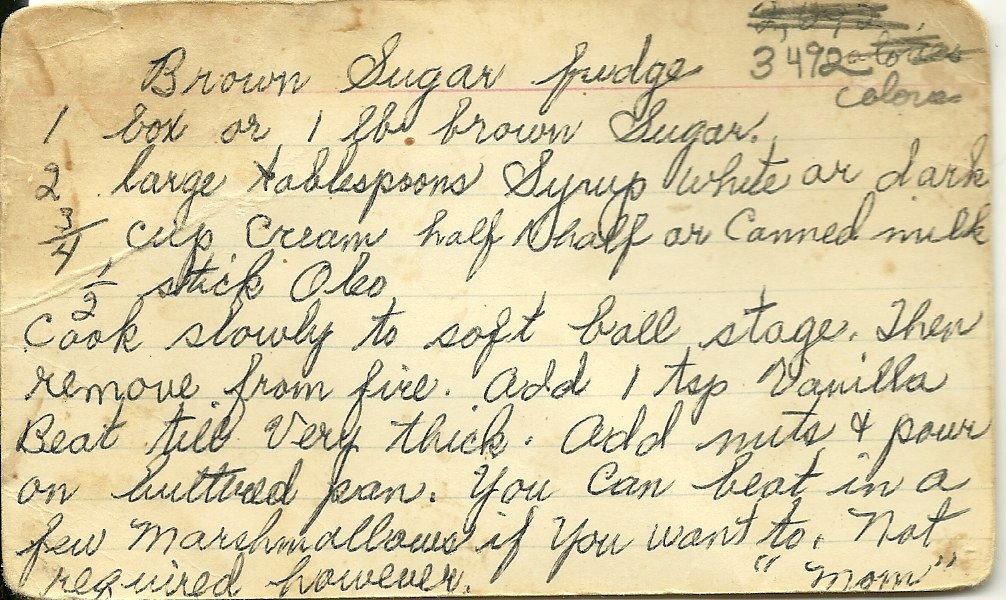 3492
Brown Sugar fudge
1 box or 1 lb. brown Sugar.
2 large tablespoons Syrup white or dark
3/4 cup Cream half & half or Canned milk
1/2 stick Oleo
Cook slowly to soft ball stage. Then
remove from fire. Add 1 tsp Vanilla
Beat till Very thick. Add nuts & pour
on buttered pan. You Can beat in a
few Marshmallows if You want to. Not
required however. "Mom"